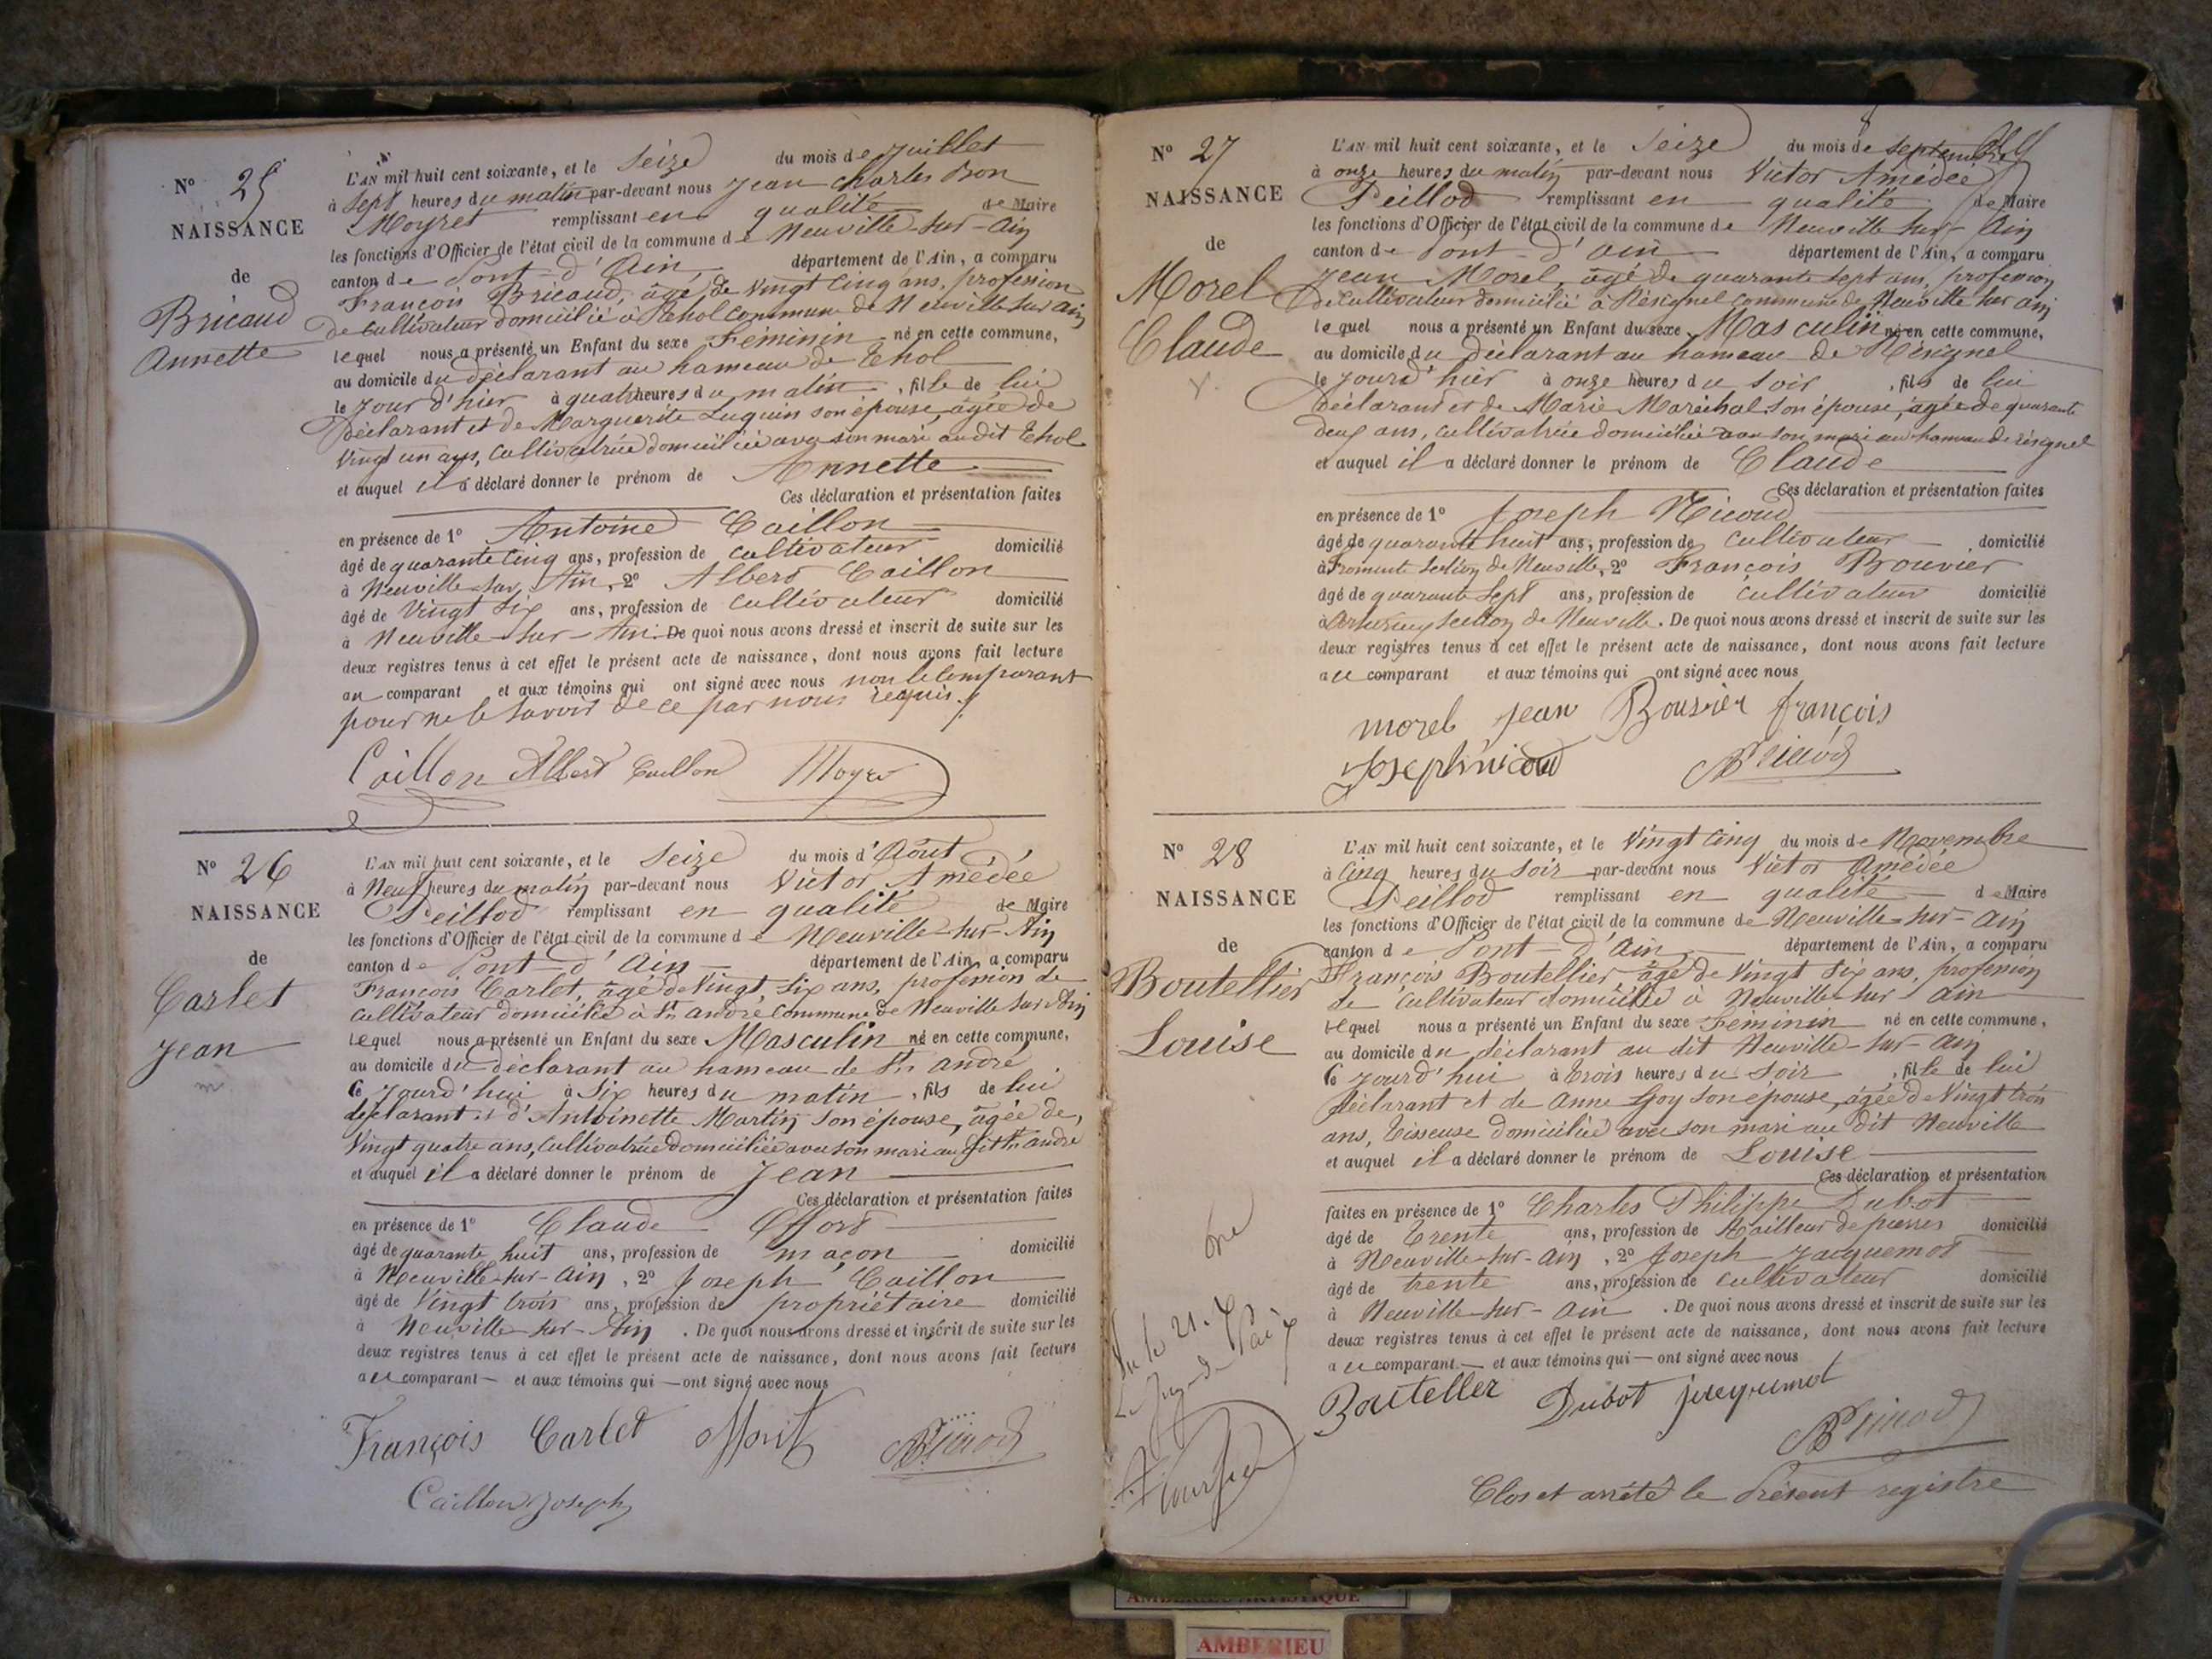 N° 25
NAISSANCE
de
Bricaud
Annette
L'AN mil huit cent soixante, et le Seize du mois de Juillet
à Sept heures du matin par-devant nous Jean Charles Bon
Moyret remplissant en qualité de Maire
les fonctions d'Officier de l'état civil de la commune de Neuville-sur-Ain
canton de Pont-d'Ain département de l'Ain, a comparu
François Bricaud, âgé de Vingt Cinq ans, profession
de Cultivateur domicilié à Thol Commune de Neuville sur Ain
lequel nous a présenté un Enfant du sexe Féminin né en cette commune,
au domicile du déclarant au hameau de Thol
le Jour d'hier à quatre heures du matin, fille de lui
Déclarant et de Marguerite Luquin son épouse, âgée de
Vingt un ans, Cultivatrice domiciliée avec son mari au dit Thol
et auquel il a déclaré donner le prénom de Annette
Ces déclaration et présentation faites
en présence de 1° Antoine Caillon
âgé de quarante Cinq ans, profession de Cultivateur domicilié
à Neuville-sur Ain, 2° Albert Caillon
âgé de Vingt Six ans, profession de Cultivateur domicilié
à Neuville-sur-Ain. De quoi nous avons dressé et inscrit de suite sur les
deux registres tenus à cet effet le présent acte de naissance, dont nous avons fait lecture
au comparant et aux témoins qui ont signé avec nous non le Comparant
pour ne le Savoir de ce par nous requis.
Caillon Albert Caillon Moyret
N° 26
NAISSANCE
de
Carlet
Jean
m
L'AN mil huit cent soixante, et le Seize du mois d'Août
à Neuf heures du matin par-devant nous Victor Amédée
Peillod remplissant en qualité de Maire
les fonctions d'Officier de l'état civil de la commune de Neuville-sur-Ain
canton de Pont-d'Ain département de l'Ain, a comparu
François Carlet, âgé de Vingt Six ans, profession de
Cultivateur domicilié à St André Commune de Neuville sur Ain
lequel nous a présenté un Enfant du sexe Masculin né en cette commune,
au domicile du déclarant au hameau de St André
Ce Jourd'hui à Six heures du matin, fils de lui
déclarant et d'Antoinette Martin Son épouse, âgée de,
Vingt quatre ans, Cultivatrice domiciliée avec son mari au dit St André
et auquel il a déclaré donner le prénom de Jean
Ces déclaration et présentation faites
en présence de 1° Claude
âgé de quarante huit ans, profession de maçon domicilié
à Neuville-sur-Ain, 2° Joseph Caillon
âgé de Vingt trois ans, profession de propriétaire domicilié
à Neuville-sur-Ain. De quoi nous avons dressé et inscrit de suite sur les
deux registres tenus à cet effet le présent acte de naissance, dont nous avons fait lecture
au comparant – et aux témoins qui – ont signé avec nous
François Carlet
Caillon Joseph
N° 27
NAISSANCE
de
Morel
Claude
L'AN mil huit cent soixante, et le Seize du mois de Septembre
à onze heures du matin par-devant nous Victor Amédée
Peillod remplissant en qualité de Maire
les fonctions d'Officier de l'état civil de la commune de Neuville sur Ain
canton de Pont-d'Ain département de l'Ain, a comparu
Jean Morel, âgé de quarante Sept ans, profession
de Cultivateur domicilié à Résignel Commune de Neuville sur Ain
lequel nous a présenté un Enfant du sexe Masculin né en cette commune,
au domicile du Déclarant au hameau de Résignel
le Jour d'hier à onze heures du Soir, fils de lui
Déclarant et de Marie Maréchal Son épouse, âgée de quarante
deux ans, Cultivatrice domiciliée avec son mari au hameau de Résignel
et auquel il a déclaré donner le prénom de Claude
Ces déclaration et présentation faites
en présence de 1° Joseph Nicoud
âgé de quarante huit ans, profession de Cultivateur domicilié
à Fromente Section de Neuville, 2° François Bouvier
âgé de quarante Sept ans, profession de Cultivateur domicilié
à Section de Neuville. De quoi nous avons dressé et inscrit de suite sur les
deux registres tenus à cet effet le présent acte de naissance, dont nous avons fait lecture
au comparant et aux témoins qui ont signé avec nous
morel Jean Bouvier françois
Joseph nicoud
N° 28
NAISSANCE
de
Boutellier
Louise
L'AN mil huit cent soixante, et le Vingt Cinq du mois de Novembre
à Cinq heures du Soir par-devant nous Victor Amédée
Peillod remplissant en qualité de Maire
les fonctions d'Officier de l'état civil de la commune de Neuville-sur-Ain
canton de Pont-d'Ain département de l'Ain, a comparu
François Boutellier, âgé de Vingt Six ans, profession
de Cultivateur domicilié à Neuville-sur Ain
lequel nous a présenté un Enfant du sexe Féminin né en cette commune,
au domicile du déclarant au dit Neuville-sur-Ain
Ce Jourd'hui à trois heures du Soir, fille de lui
Déclarant et de Anne Goy Son épouse, âgée de Vingt trois
ans, Tisseuse domiciliée avec son mari au dit Neuville
et auquel il a déclaré donner le prénom de Louise
Ces déclaration et présentation
faites en présence de 1° Charles Philippe Dubot
âgé de Trente ans, profession de tailleur de pierres domicilié
à Neuville-sur-Ain, 2° Joseph Jacquemot
âgé de trente ans, profession de Cultivateur domicilié
à Neuville-sur-Ain. De quoi nous avons dressé et inscrit de suite sur les
deux registres tenus à cet effet le présent acte de naissance, dont nous avons fait lecture
au comparant – et aux témoins qui – ont signé avec nous
Dubot
Clos et arrêté le Présent registre
Vu le 21
Le Juge de Paix
AMBERIEU ARTISTIQUE
AMBERIEU